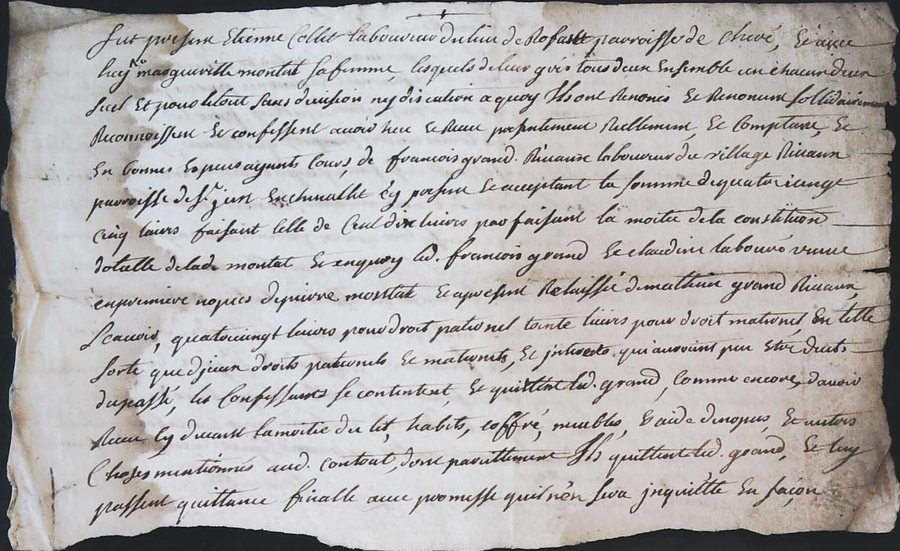 fut present Etienne Collet laboureur du lieu de Rofart parroisse de cheré, et avec
luy montat sa femme, lesquels de leur gré tous deux Ensemble un chacun deux
seul Et pour le tout sans division ny discution a quoy Ils ont Renoncé Et Renoncent sollidairement
Reconnoissent Et confessent avoir heu Et Receu presentement Reellement, Et Comptant, Et
En bonnes Especes ayants Cours, de francois grand Ricaux laboureur du village Ricaux
parroisse de St. just En chevallet Icy present Et acceptant la somme de quatrevingt
cinq livres faisant celle de Cent dix livres parfaisant la moitié de la constitution
dotalle de lad. montat Et en quoy led. francois grand Et claudine labouré veuve
en premiere nopces de pierre montat Et a present Relaissée de mathieu grand Ricaux,
Scavoir, quatrevingt livres pour droit paternel trente livres pour droit maternel, En telle
sorte que d'jceux droits paternels Et maternels, Et jnterets qui auroient peu etre deubs
du passé, les Confessants se contentent, Et quittent led. grand, Comme encore, d'avoir
Receu cy devant la moitié du lit, habits, coffré, meubles, Et aide de nopces, Et autres
Choses mentionnés aud. Contrat, dont pareillement Ils quittent led. grand, Et luy
passent quittance finalle avec promesse qu'il n'en sera jnquiétté En façon